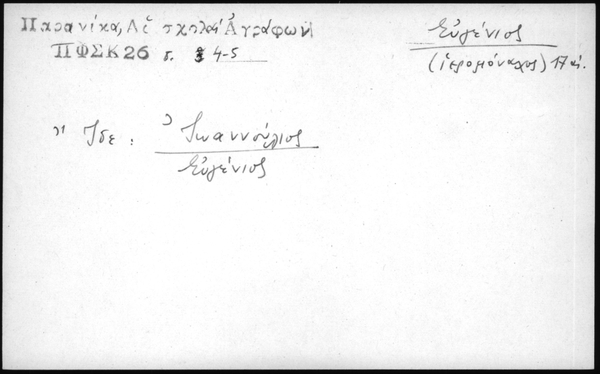 Παρανίκα, Αἱ σχολαί Ἀγράφων
ΠΦΣΚ26 σ. 4-5
Εὐγένιος
(ἱερομόναχος) 17 αἰ.
Ἴδε: Ἰωαννούλιος
Εὐγένιος